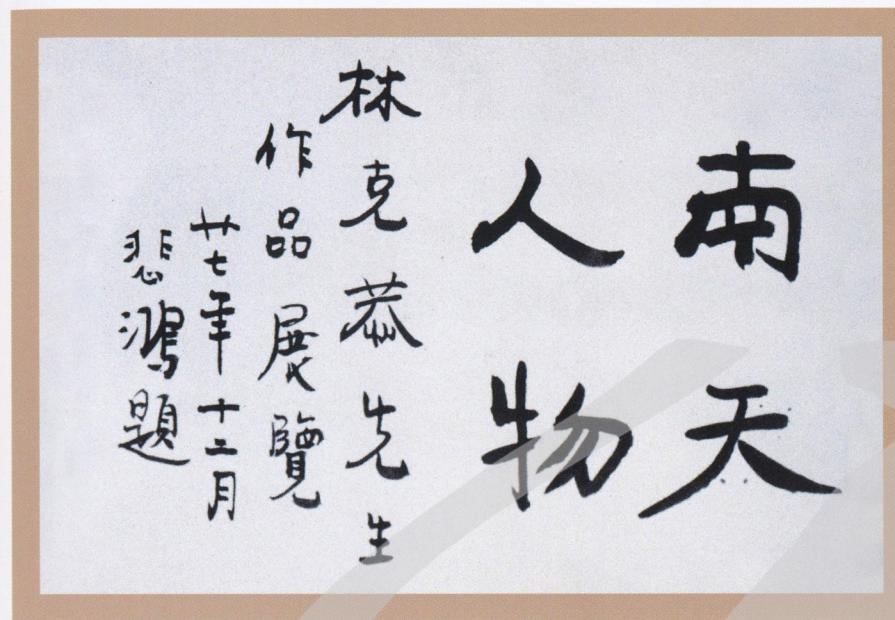 南天
人物
林克恭先生
作品展覽
廿七年十二月
悲鴻題